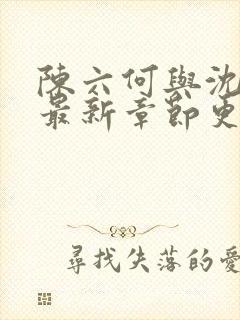 陳六何與沈
最新章節更
尋找失落的愛